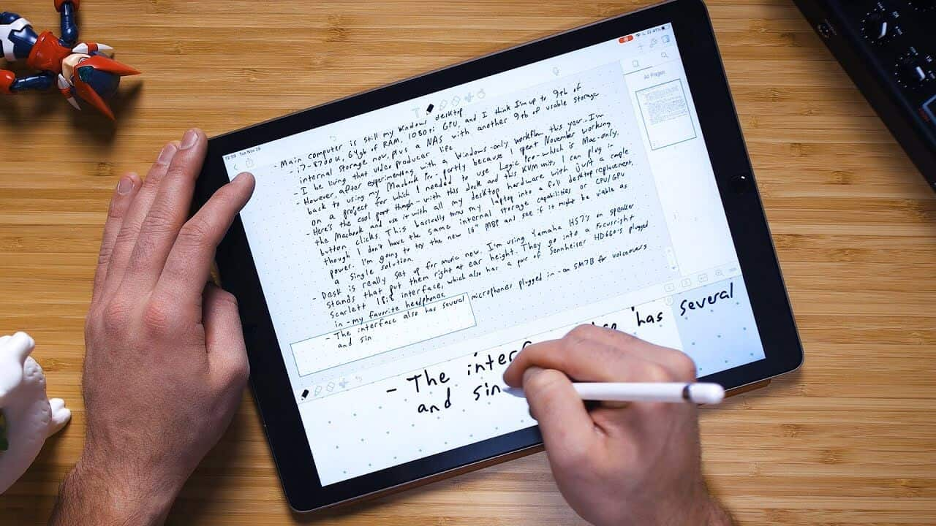 - Main computer is still my Windows desktop
i7-8700k, 64gb of RAM, 1080ti GPU, and I think I'm up to 9tb of
internal storage now, plus a NAS with another 9tb of usable storage
- I be living that video producer life
- However, after experimenting with a Windows-only workflow this year, I'm
back to using my Macbook Pro, partly because I spent November working
on a project for which I needed to use Logic Pro - which is Mac only.
- Here's the cool part though - with this dock and this KVM unit, I can plug in
the Macbook and use it with all my desktop hardware with just a couple
button clicks. This basically turns my laptop into a full desktop replacement,
though I don't have the same internal storage capabilities or CPU/GPU
power. I'm going to try the new 16" MBP and see if it might be viable as
a single solution
- Desk is really set up for music now. I'm using Yamaha HS7s on speaker
stands that put them right at ear height. They go into a Focusright
Scarlett 18i8 interface, which also has a pair of Senheiser HD660s plugged
in - my favorite headphones
- The interface also has several microphones plugged in - an SM7B for voiceovers
and sin
All Pages
- The inter has several
and sin